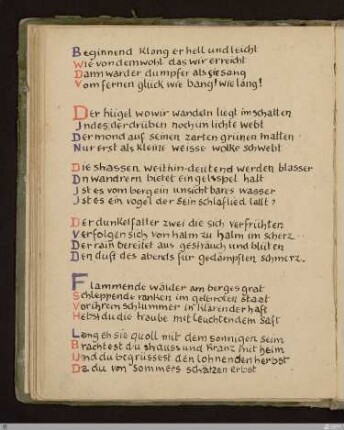 Beginnend klang er hell und leicht
Wie von dem wohl das wir erreicht
Dann war der dumpfer als sie sang
Vom fernen glück wie bang! wie lang!
Der hügel wo wir wandeln liegt im schatten
Indes der drüben noch im lichte webt
Der mond auf seinen zarten grünen matten
Nur erst als kleine weisse wolke schwebt
Die strassen weithin-deutend werden blasser
Den wandrern bietet ein gelispel halt
Ist es vom berg ein unsichtbares wasser
Ist es ein vogel der sein schlaflied lallt?
Der dunkelfalter zwei die sich verfrühten
Verfolgen sich von halm zu halm im scherz
Der rain bereitet aus gesträuch und blüten
Den duft des abends für gedämpften schmerz.
Flammende wälder am bergesgrat
Schleppende ranken im gelbroten staat
Vor ihrem schlummer in klärender haft
Hebst du die traube mit leuchtendem saft
Lang eh sie quoll mit dem sonnigen seim
Brachtest du strauss und kranz mit heim
Und du begrüssest den lohnenden herbst
Da du von sommers schätzen erbst